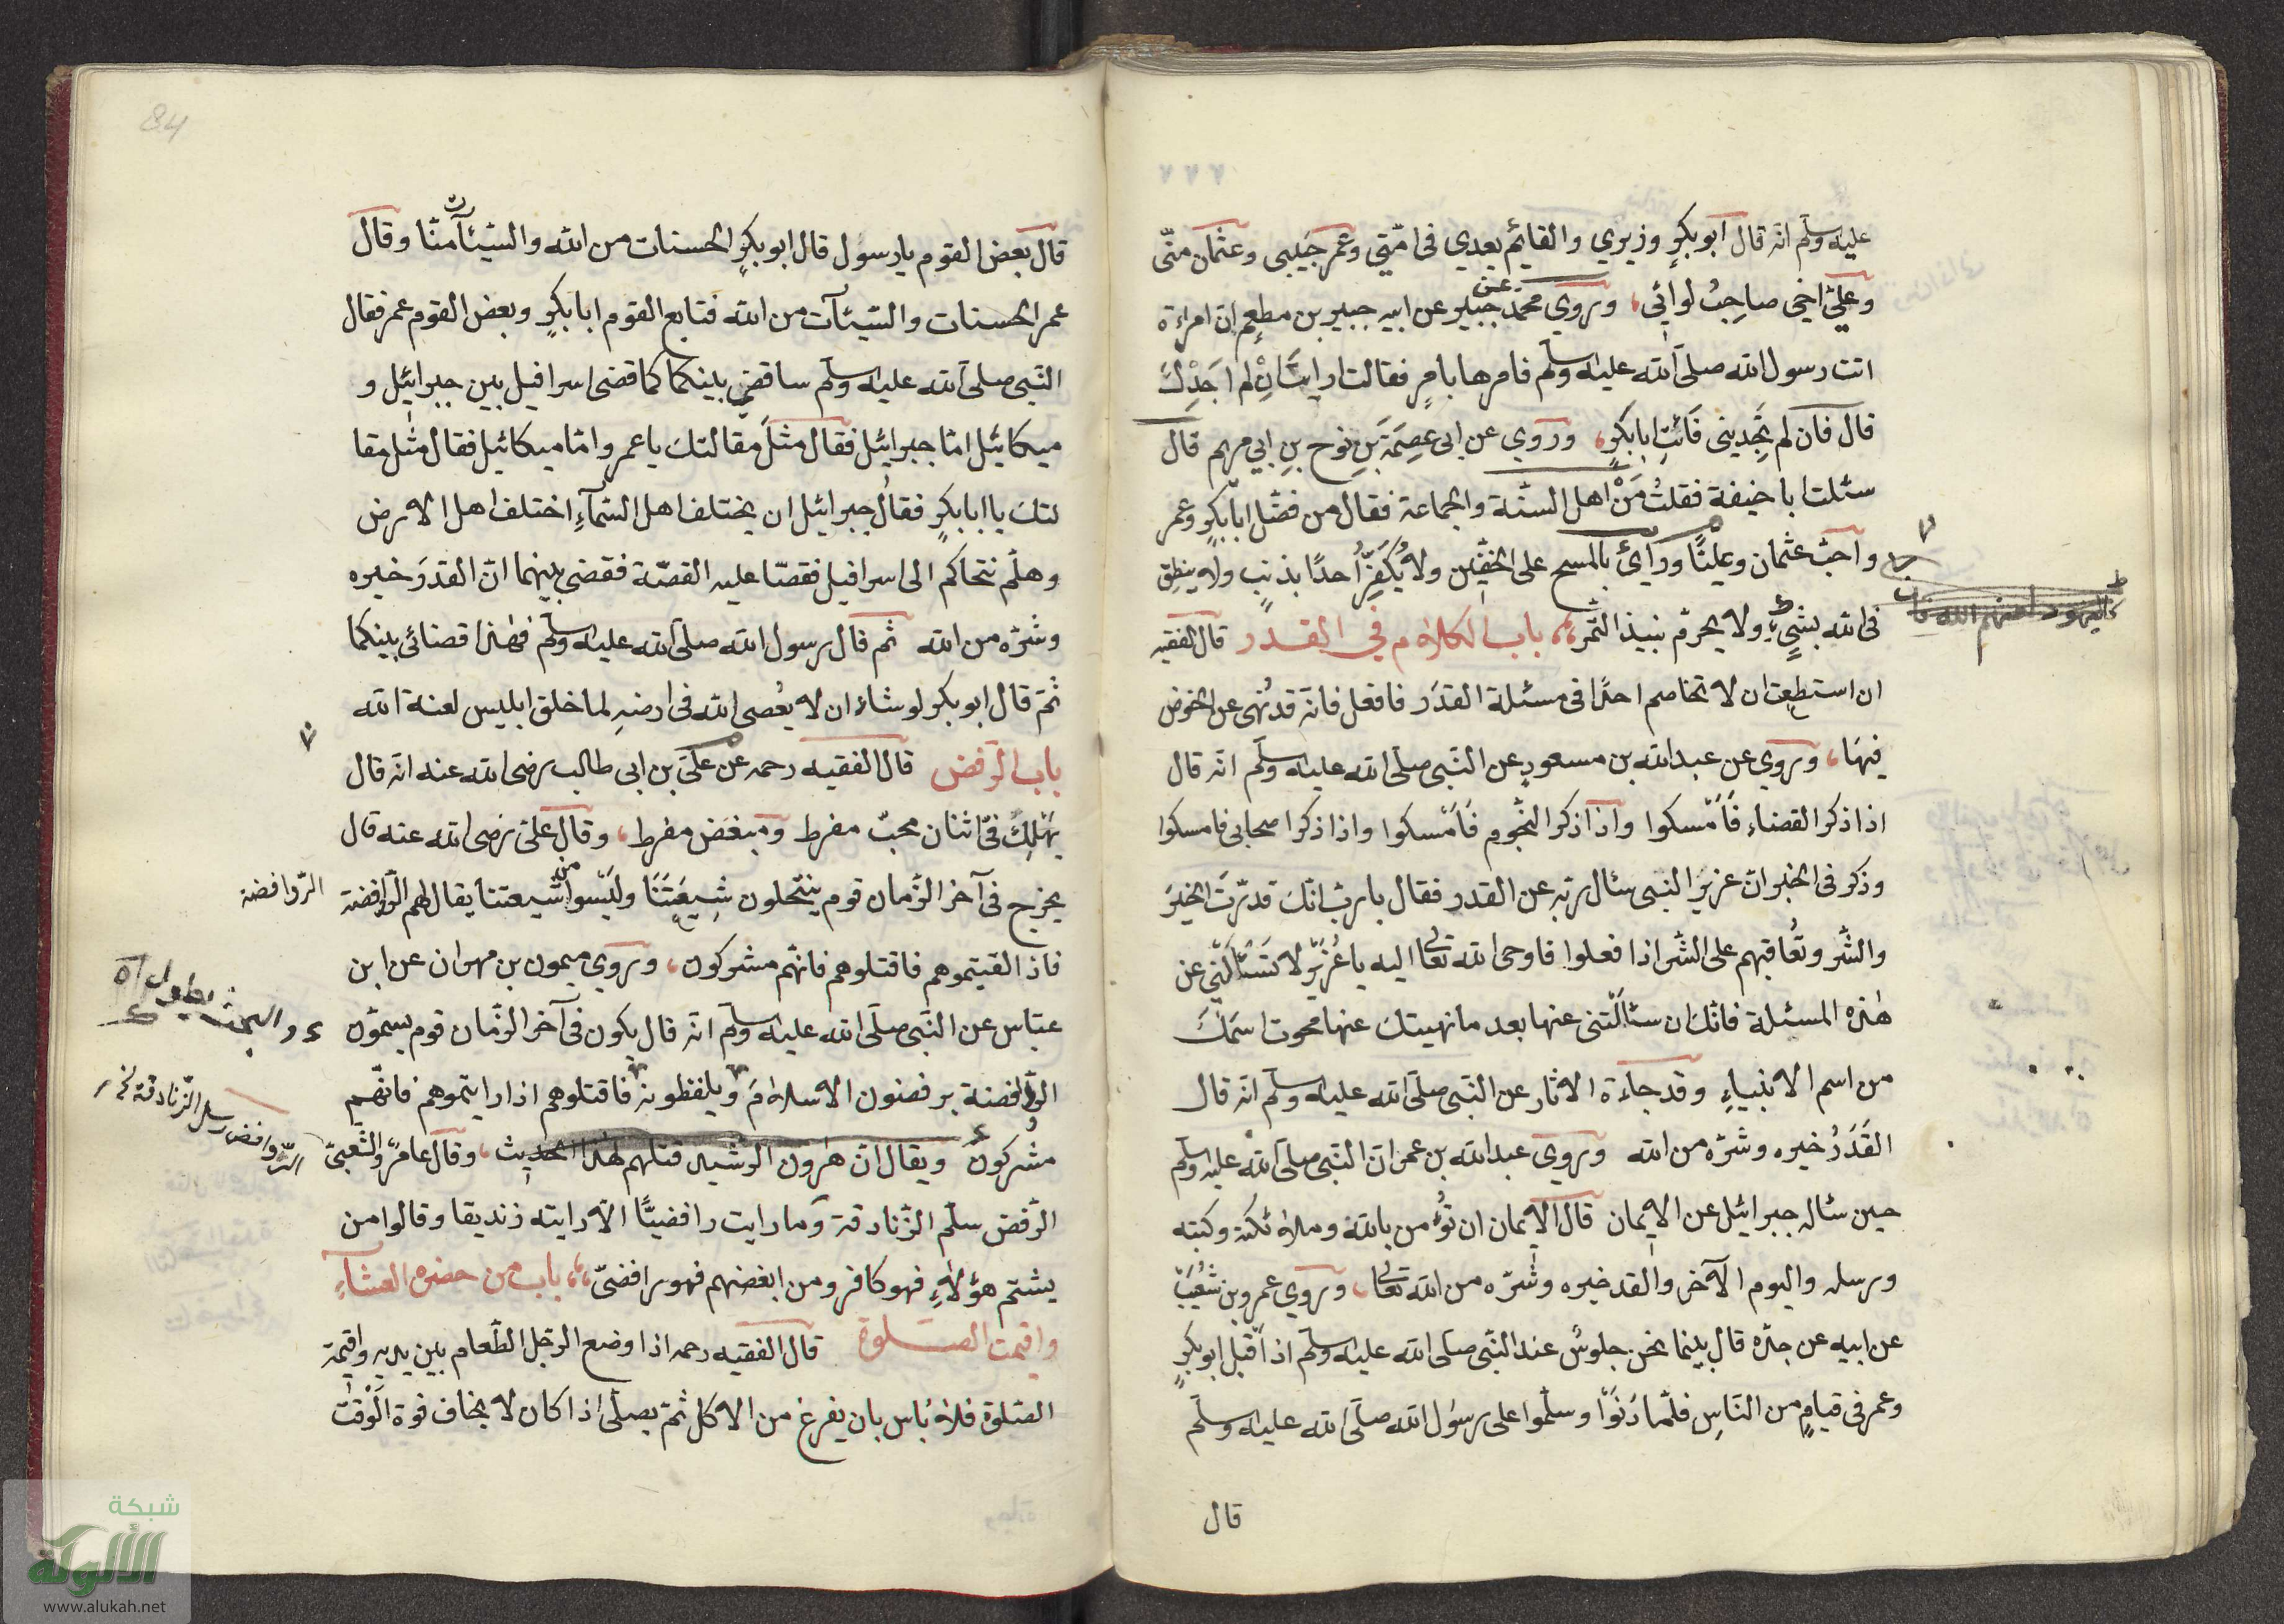 عليه وسلم انه قال ابو بكرٍ وزيري والقائم بعدي فى امّتي وعمر حَبيبى وعثمان منّى
وعليّ اخي صاحِبُ لوائي، وروي محمد عن جبير عن ابيه جبير بن مطعِم ان امراءة
اتت رسول الله صلى الله عليه وسلم فامرها بامرٍ فقالت ارايتَ اِنْ لم اجَدْكَ
قال فان لم تجدينى فَائتِ ابا بكرٍ، وروي عن ابى عصِمَةَ بنِ نوح بنِ ابي مريم قال
سئلت ابا حنيفة فقلتُ مَنْ اهل السنّة والجماعة فقال من فضّل ابا بكرٍ وعمر
واحبّ عثمان وعليًّا ورأىٰ بالمسح على الخفّين ولا يُكَفِرُ احدًا بذنبٍ ولا ينطِق
فى الله بشيءٍ ولا يحرم نبيذ التّمر، باب الكلام في القدر قال الفقيه
ان استطعت ان لا تخاصم احدًا فى مسئلة القدَر فافعل فانّه قد نُهى عن الخوض
فيهَا، وروي عن عبد الله بن مسعودٍ عن النّبى صلى الله عليه وسلم انّه قال
اذا ذكر القضاء فَاَمْسكوا واذا ذكر النجّوم فَاَمْسكوا واذا ذكروا صحابى فامسكوا
وذكر فى الخبر انّ عزيرَ النبى سئال ربّه عن القدر فقال يا ربّ انّكَ قدّرتَ الخيَر
والشّر وتُعاقبهم على الشّر اذا فعلوا فاوحى الله تعالى اليه يا عُزيرُ لا تَسْئالَنّي عن
هٰذه المسئلة فانّكَ ان سئالتنى عنها بعد ما نهيتكَ عنها محوت اسمَكَ
من اسم الانبياءِ وقد جاءة الاثار عن النّبى صلى الله عليه وسلم انّه قال
القَدَرُ خيره وشرّه من الله وروي عبد الله بن عمر انّ النّبى صلى الله عليه وسلم
حين سئاله جبرائيل عن الايمان قال الايمان ان تؤمن بالله وملائكته وكتبه
ورسله واليوم الآخر والقدر خيره وشرّه من الله تعالى، وروي عمرو بن شُعَيب
عن ابيه عن جدّه قال بينما نحن جلوسٌ عند النّبى صلى الله عليه وسلم اذ اقبل ابو بكرٍ
وعمر فى قيامٍ من النّاسِ فلمّا دَنَوْا وسلّموا على رسُول الله صلى الله عليه وسلم
قال
84
قال بعض القوم يا رسُول قال ابو بكرٍ الحسنات من الله والسّيئآت منّا وقال
عمر الحسنات والسّيئآت من الله فتابع القوم ابا بكرٍ وبعض القوم عمر فقال
النّبى صلى الله عليه وسلم ساقضى بينكما كما قضى اسرافيل بين جبرائيل و
ميكائيل امّا جبرائيل فقال مثلَ مقالتكَ يا عمر وامّا ميكائيل فقال مثل مقا
لتكَ يا ابا بكرٍ فقال جبرائيل ان يختلف اهل السّمآءِ اختلف اهل الارض
وهلمّ نتحاكم الى اسرافيل فقصّا عليه القصّة فقضى بينهما انّ القدَرَ خيره
وشرّه من الله ثم قال رسول الله صلى الله عليه وسلم فهٰذا قضائى بينكما
ثمّ قال ابو بكر لو شاء ان لا يُعصى الله فى ارضهِ لما خلق ابليس لعنة الله
باب الرّفض قال الفقيه رحمه عن علىّ بن ابى طالب رضى الله عنه انّه قال
يَهْلِكُ فىّ اثنان محبّ مفرط ومبغَض مفرط، وقال علىّ رضى الله عنه قال
يخرج فى آخر الزّمان قوم ينتحلون شِيعَتَنَا وليَسُوا من شيعتنا يقال لهم الرّوافضة
الرّوافضة
فاذا لقيتموهم فاقتلوهم فانّهم مشركون، وروي ميمون بن مهران عن ابن
عبّاس عن النّبى صلى الله عليه وسلم انّه قال يكون فى آخر الزّمان قوم يسمّون
الرّوافضة يرفضون الاسلامَ ويلفظونه فاقتلوهم اذا رايتموهم فانّهم
مشركون ويقال انّ هٰرون الرّشيد قتلهم لهٰذا الحديث، وقال عامرٌ والشّعبىّ
الرّفض سلّم الزّنادقة وما رايت رافضيًّا الّا رايته زنديقا وقالوا من
يشتم هؤلاءِ فهو كافر ومن ابغضهم فهو رافضىّ، باب من حضره العشاءِ
واقيمت الصّلوة قال الفقيه رحمه اذا وضع الرّجل الطّعام بين يديه واقيمة
الصّلوة فلا بَاس بان يفرغ من الاكل ثمّ يصلّى اذا كان لا يخاف فوة الَوْقت
شبكة
الألوكة
www.alukah.net